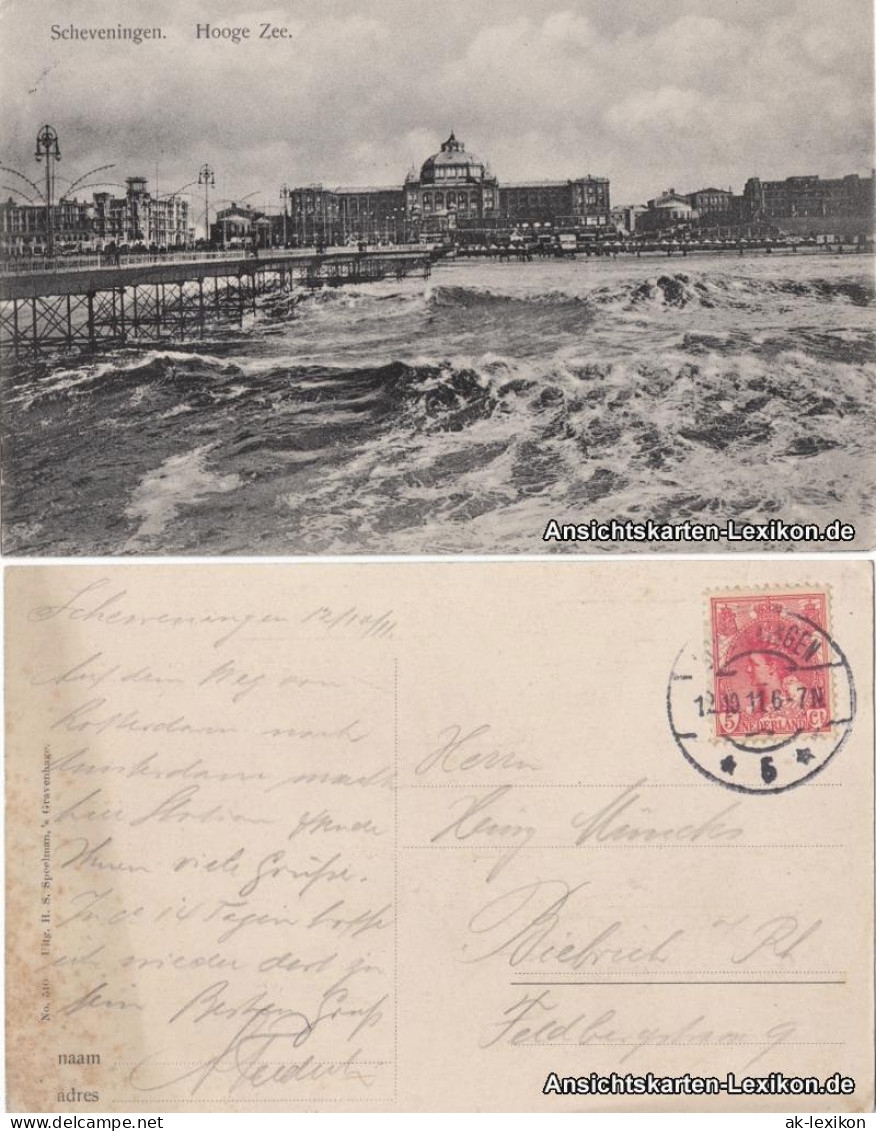 Scheveningen. Hooge Zee.
Ansichtskarten-Lexikon.de
Scheveningen 12/10/11.
Auf dem Weg von
Rotterdam nach
Amsterdam mache
hier Station sende
Ihnen viele Grüße.
In ca 14 Tagen hoffe
ich wieder dort zu
sein Besten Gruß
No. 510 Uitg. H. S. Speelman, 's Gravenhage.
naam
adres
NINGEN
12.10.11 6-7N
5
5 NEDERLAND Ct
Herrn
Heinz
Biebrich a Rh
Feldbergstrasse 9
Ansichtskarten-Lexikon.de
ak-lexikon